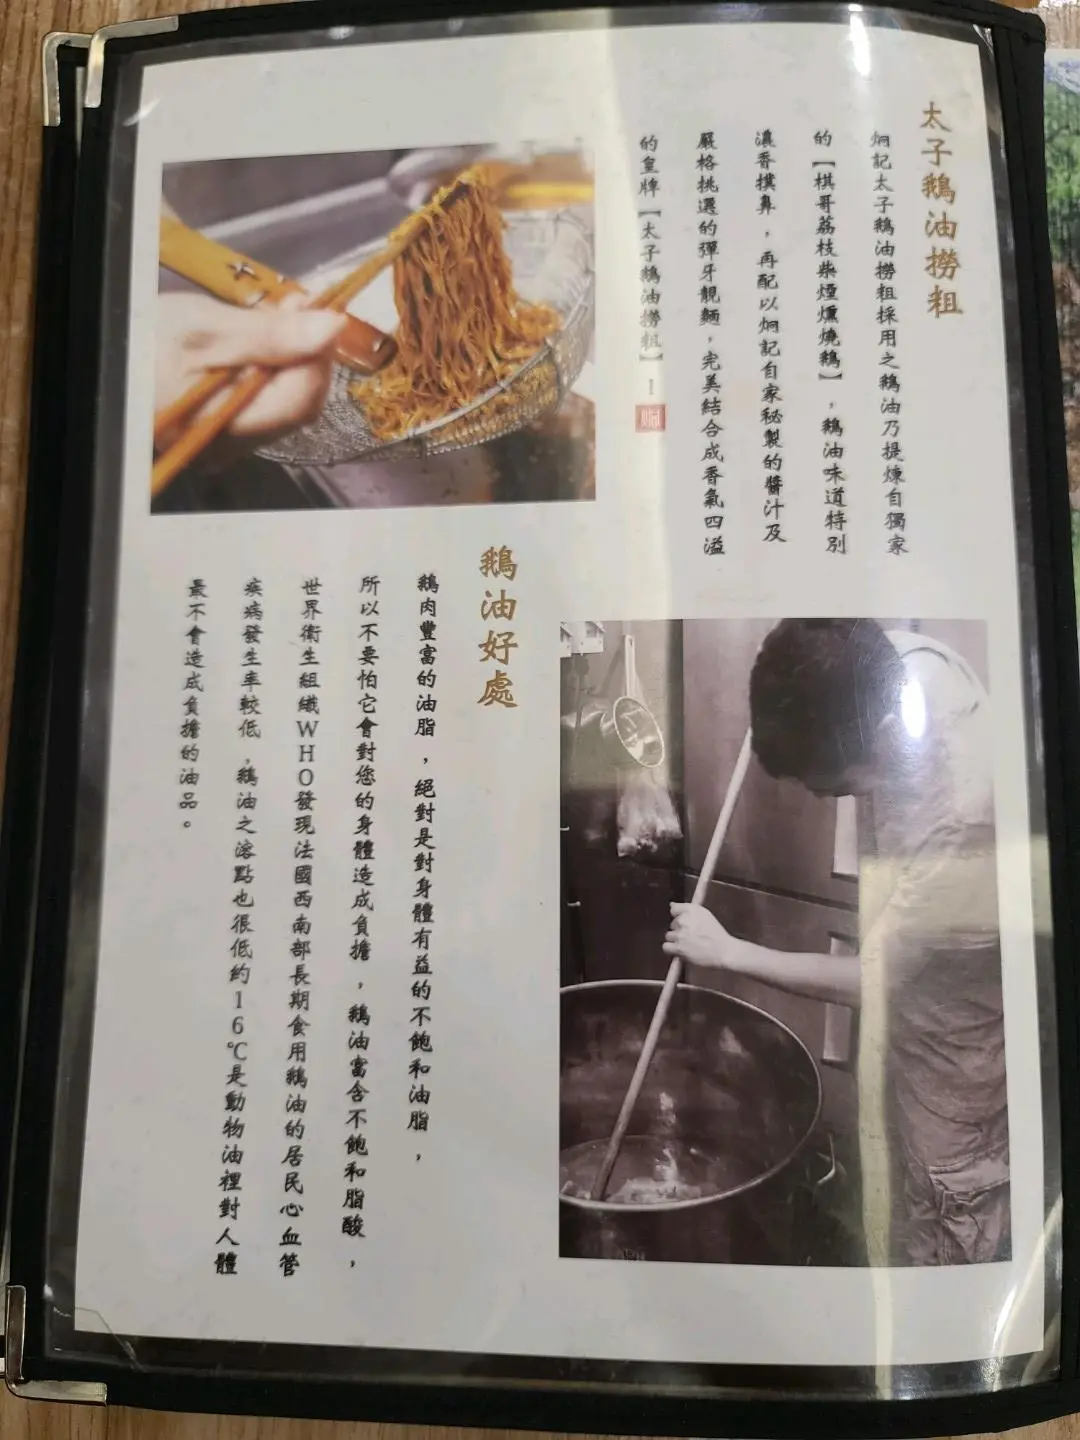 太子鵝油撈粗
炯記太子鵝油撈粗採用之鵝油乃提煉自獨家
的【棋哥荔枝柴煙燻燒鵝】，鵝油味道特別
濃香撲鼻，再配以炯記自家秘製的醬汁及
嚴格挑選的彈牙靚麵，完美結合成香氣四溢
的皇牌【太子鵝油撈粗】！
鵝油好處
鵝肉豐富的油脂，絕對是對身體有益的不飽和油脂，
所以不要怕它會對您的身體造成負擔，鵝油富含不飽和脂酸，
世界衛生組織WHO發現法國西南部長期食用鵝油的居民心血管
疾病發生率較低，鵝油之溶點也很低約16℃是動物油裡對人體
最不會造成負擔的油品。